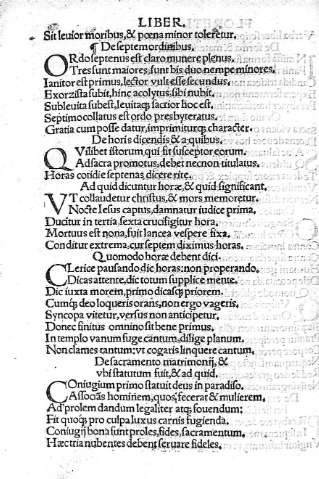 LIBER.
Sit leuior moribus, & pœna minor toleretur.
¶ De septem ordinibus.
ORdo septenus est claro munere plenus.
Tres sunt maiores, sunt bis duo nempe minores.
Ianitor est primus, lector vult esse secundus.
Exorzista subit, hinc acolytus, sibi nubit.
Subleuita subest, leuitaq; sacrior hoc est.
Septimo collatus est ordo presbyteratus.
Gratia cum posse datur, imprimiturq; character.
De horis dicendis & a quibus.
QVilibet istorum, qui sit susceptor eorum.
Ad sacra promotus, debet necnon titulatus.
Horas cotidie septenas dicere rite.
Ad quid dicuntur horæ, & quid significant.
VT collaudetur christus, & mors memoretur.
Nocte Iesus captus, damnatur iudice prima.
Ducitur in tertia sexta crucifigitur hora.
Mortuus est nona, fuit lancea vespere fixa.
Conditur extrema, cur septem diximus horas.
Quomodo horæ debent dici.
CLericæ pausando dic horas: non properando.
Dicas attente, dic totum supplice mente.
Dic iuxta morem, primo dicasq; priorem.
Cumq; deo loqueris orans, non ergo vageris.
Syncopa vitetur, versus non anticipetur.
Donec finitus omnino sit bene primus.
In templo vanum fuge cantum, dilige planum.
Non clames cantum; vt cogaris linquere cantum.
De sacramento matrimonij, &
vbi statutum fuit, & ad quid.
COniugium primo statuit deus in paradiso.
Associās hominem, quos, fecerat & mulierem.
Ad prolem dandum legaliter atq; fouendum:
Fit quoq; pro culpa luxus carnis fugienda.
Coniugij bona sunt proles, fides, sacramentum.
Hæc tria nubentes debent seruare fideles.